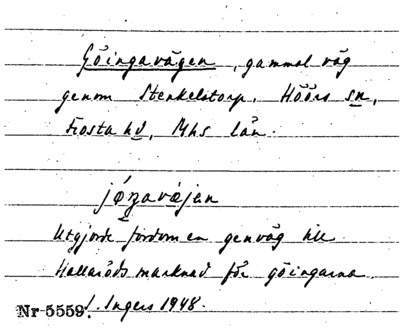 Göingavägen, gammal väg
genom Stenkelstorp, Höörs sn,
Frosta hd, Mhs län.
jǿŋavæjen
Utgjorde fordom en genväg till
Hallaröds marknad för göingarna.
I. Ingers 1948.
Nr 5559.